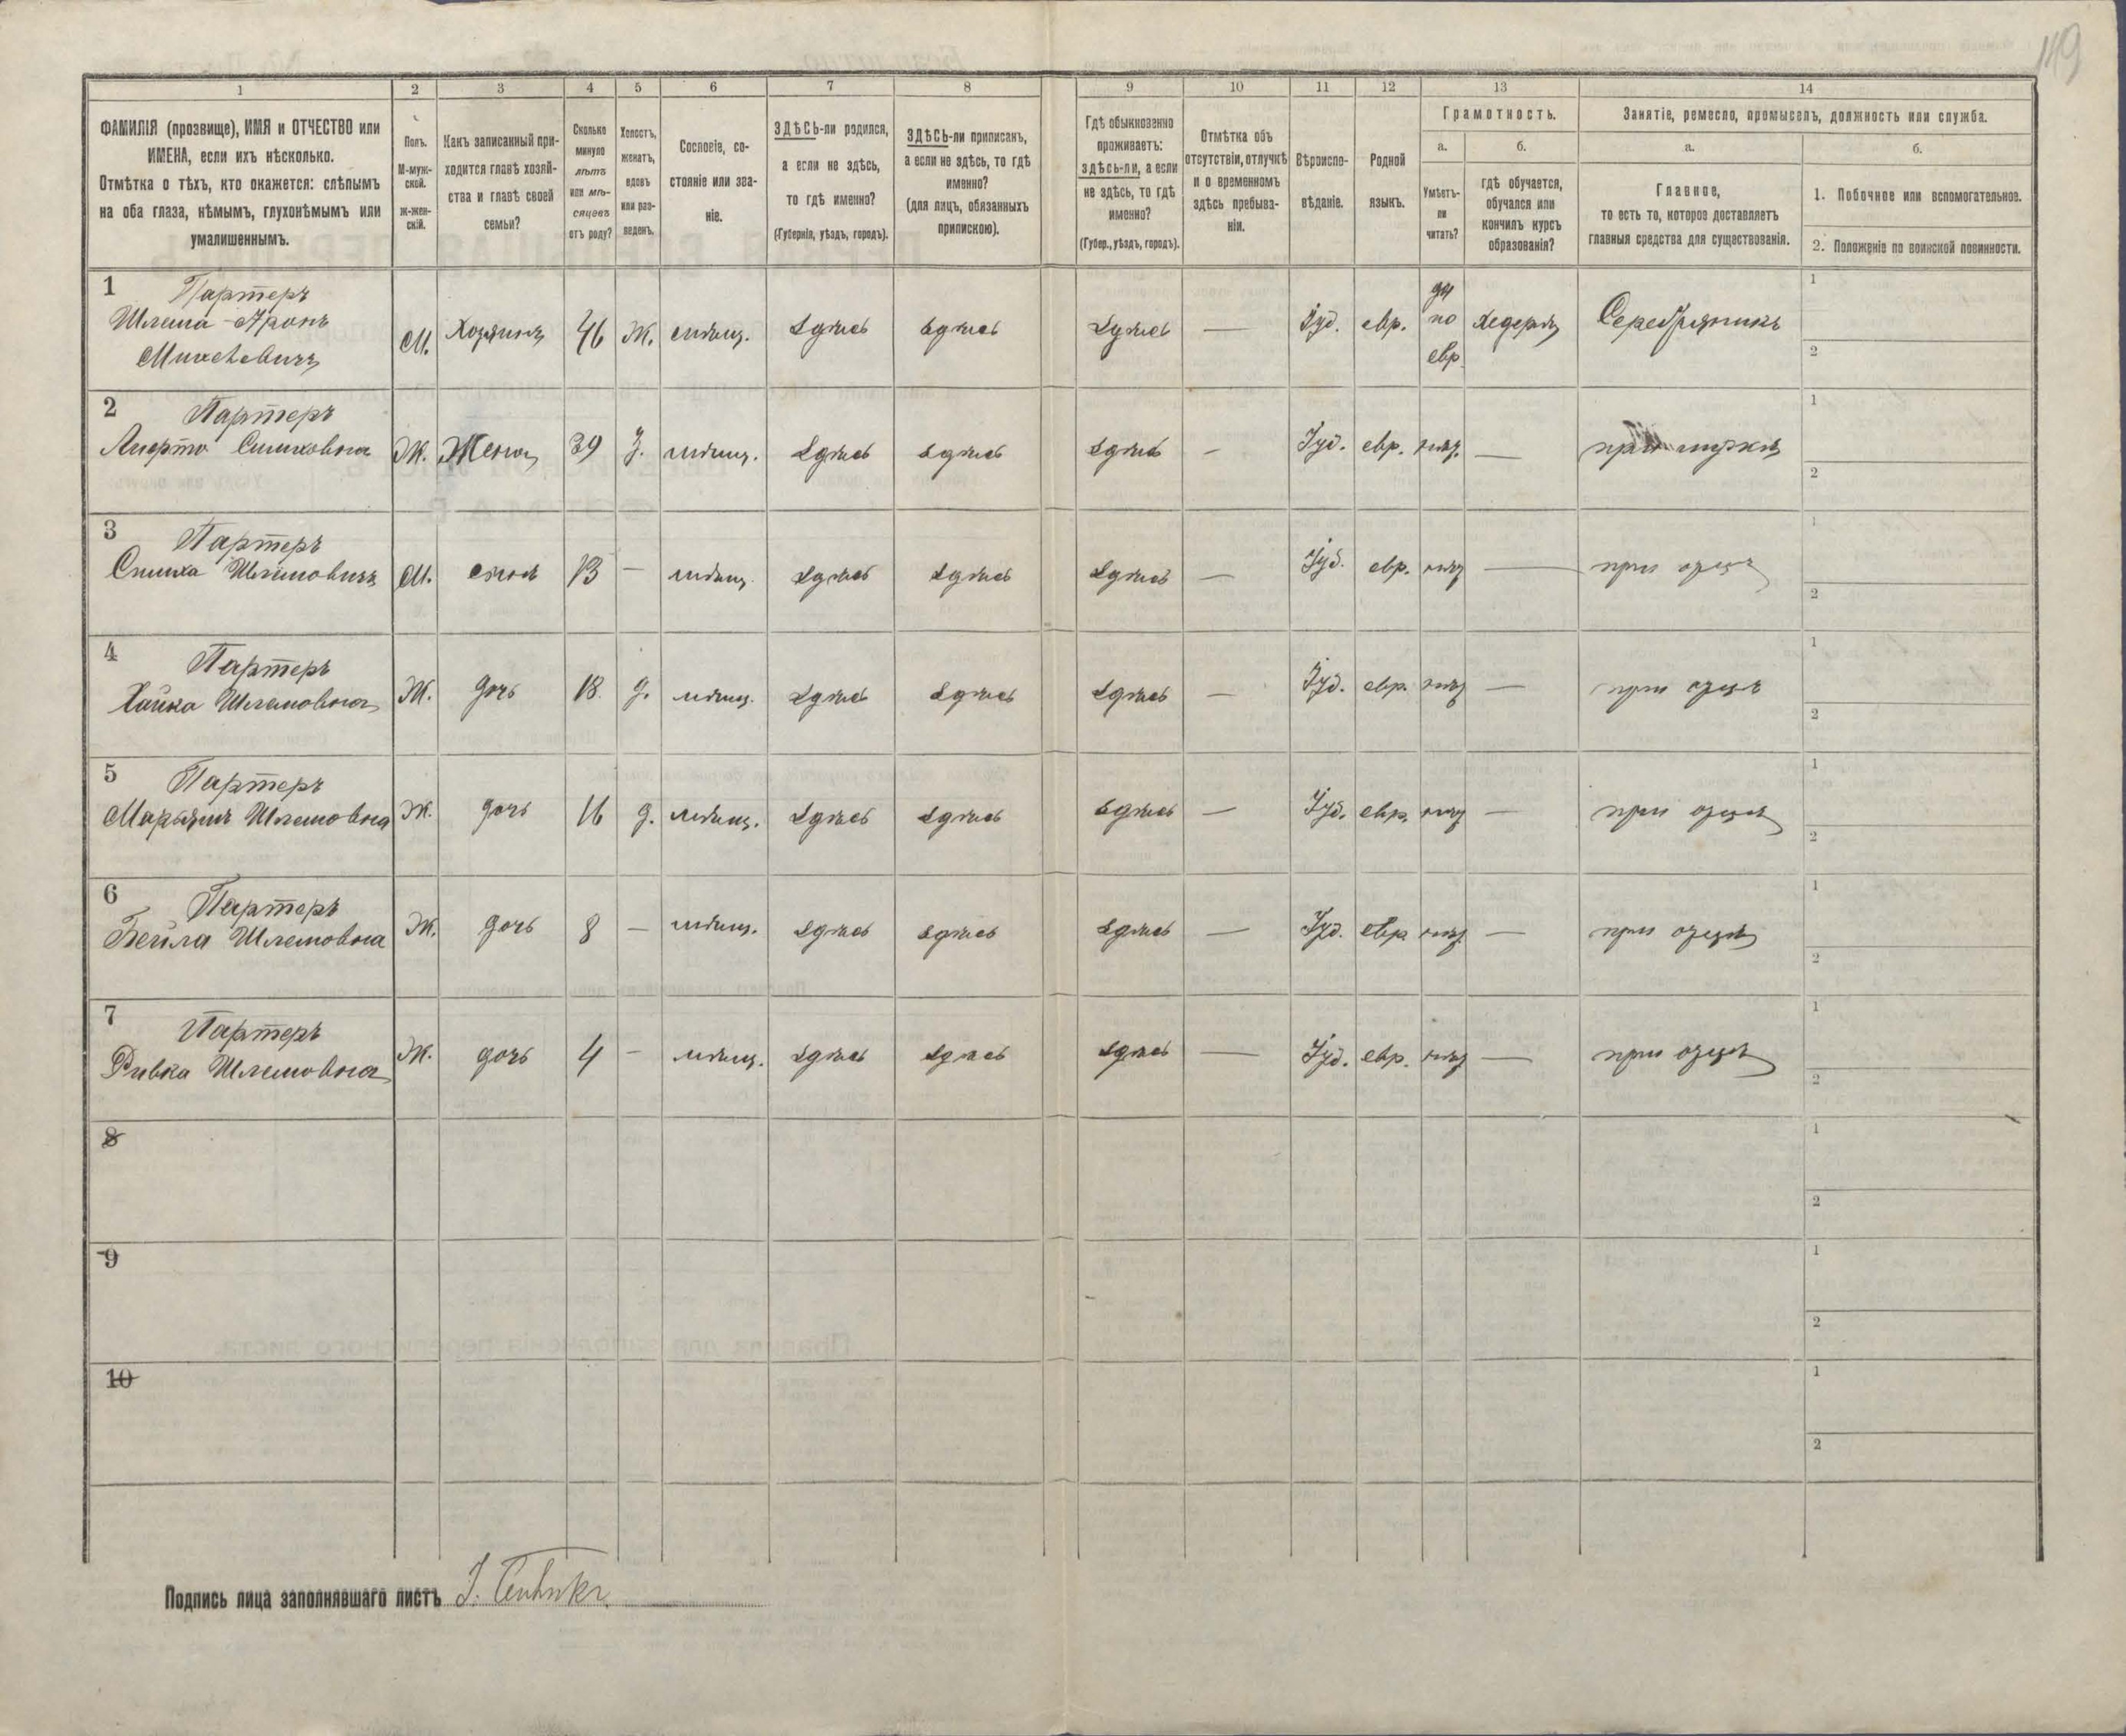 119
1 2 3 4 5 6 7 8 9 10 11 12 13 14
ФАМИЛІЯ (прозвище), ИМЯ и ОТЧЕСТВО или
ИМЕНА, если ихъ нѣсколько.
Отмѣтка о тѣхъ, кто окажется: слѣпымъ
на оба глаза, нѣмымъ, глухонѣмымъ или
умалишеннымъ.
Полъ.
М-муж-
ской.
ж-жен-
скій.
Какъ записанный при-
ходится главѣ хозяй-
ства и главѣ своей
семьи?
Сколько
минуло
лѣтъ
или мѣ-
сяцевъ
отъ роду?
Холостъ,
женатъ,
вдовъ
или раз-
веденъ.
Сословіе, со-
стояніе или зва-
ніе.
ЗДѢСЬ-ли родился,
а если не здѣсь,
то гдѣ именно?
(Губернія, уѣздъ, городъ).
ЗДѢСЬ-ли приписанъ,
а если не здѣсь, то гдѣ
именно?
(для лицъ, обязанныхъ
припискою).
Гдѣ обыкновенно
проживаетъ:
здѣсь-ли, а если
не здѣсь, то гдѣ
именно?
(Губер., уѣздъ, городъ).
Отмѣтка объ
отсутствіи, отлучкѣ
и о временномъ
здѣсь пребыва-
ніи.
Вѣроиспо-
вѣданіе.
Родной
языкъ.
Грамотность.
а.
Умѣетъ-
ли
читать?
б.
гдѣ обучается,
обучался или
кончилъ курсъ
образованія?
Занятіе, ремесло, промыселъ, должность или служба.
а.
Главное,
то есть то, которое доставляетъ
главныя средства для существованія.
б.
1. Побочное или вспомогательное.
2. Положеніе по воинской повинности.
1 Партеръ
Шлема-Аронъ
М. Хозяинъ 46 Ж. мѣщ. здѣсь здѣсь здѣсь — Іуд. евр. да по евр. хедеръ Серебряникъ 1 2
2 Партеръ
Симховна Ж. Жена 39 З. мѣщ. здѣсь здѣсь здѣсь — Іуд. евр. нѣт. — при мужѣ 1 2
3 Партеръ
Симха Шлемовичъ М. сынъ 13 — мѣщ. здѣсь здѣсь здѣсь — Іуд. евр. нѣт — при отцѣ 1 2
4 Партеръ
Хайка Шлемовна Ж. дочь 18 д. мѣщ. здѣсь здѣсь здѣсь — Іуд. евр. нѣт — при отцѣ 1 2
5 Партеръ
Марьямъ Шлемовна Ж. дочь 16 д. мѣщ. здѣсь здѣсь здѣсь — Іуд. евр. нѣт — при отцѣ 1 2
6 Партеръ
Бейла Шлемовна Ж. дочь 8 — мѣщ. здѣсь здѣсь здѣсь — Іуд. евр. нѣт — при отцѣ 1 2
7 Партеръ
Ривка Шлемовна Ж. дочь 4 — мѣщ. здѣсь здѣсь здѣсь — Іуд. евр. нѣт — при отцѣ 1 2
8 1 2
9 1 2
10 1 2
Подпись лица заполнявшаго листъ